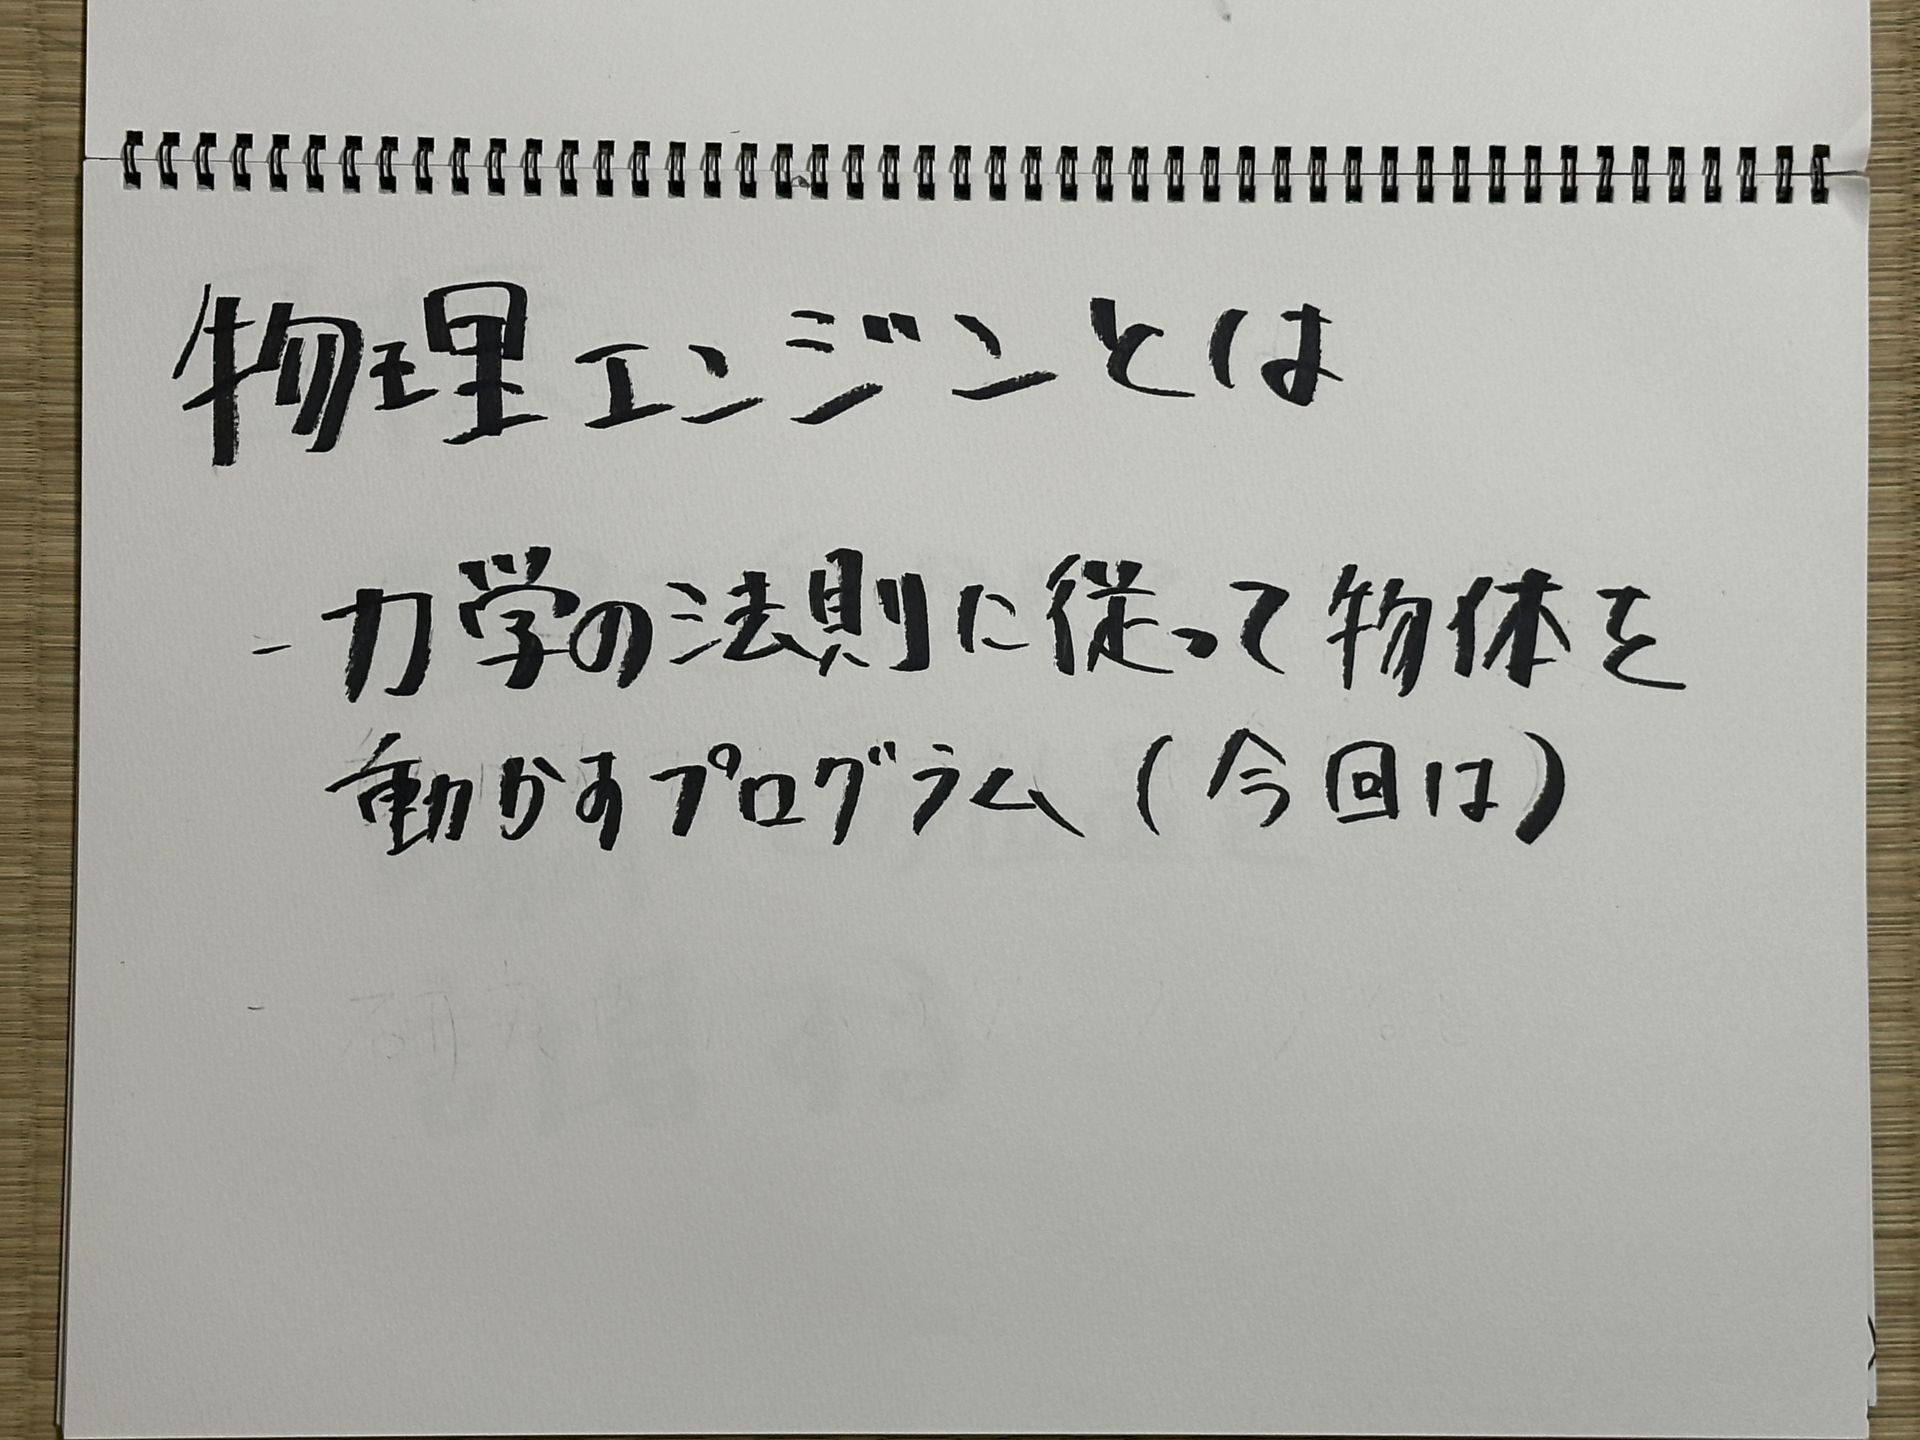 物理エンジンとは
- 力学の法則に従って物体を
動かすプログラム (今回は)
-